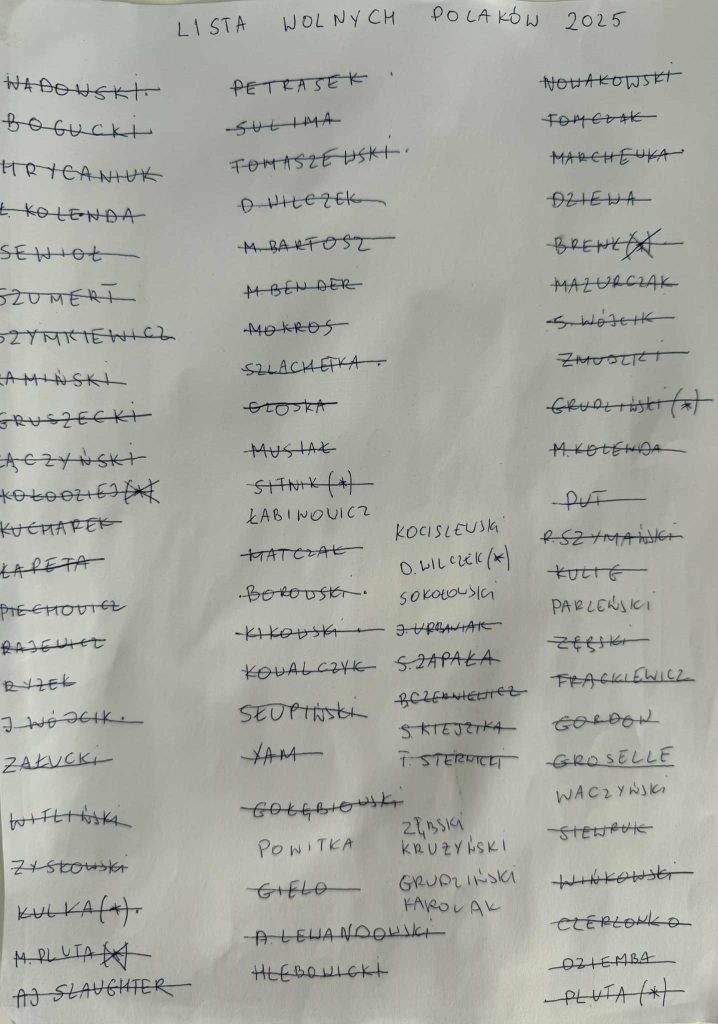 LISTA WOLNYCH POLAKÓW 2025
WADOWSKI.
BOGUCKI
HRYCANIUK
Ł. KOLENDA
SEWIOŁ
SZUMERT
SZYMKIEWICZ
KAMIŃSKI
GRUSZECKI
ŁĄCZYŃSKI
KOŁODZIEJ (*)
KUCHAREK
ŁAPETA
PIECHOWICZ
RAJEWICZ
RYŻEK
J WÓJCIK.
ZAŁUCKI
WITLIŃSKI
ZYSKOWSKI
KULKA (*).
M. PLUTA (*)
AJ SLAUGHTER
PETRASEK
SULIMA
TOMASZEWSKI.
D. WILCZEK
M. BARTOSZ
M. BENDER
MOKROS
SZLACHETKA.
GŁOSKA
MUSIAŁ
SITNIK (*)
ŁABINOWICZ
MATCZAK
BOROWSKI.
KIKOWSKI.
KOWALCZYK
SŁUPIŃSKI
YAM
GOŁĘBIOWSKI
POWITKA
GIELO
A. LEWANDOWSKI
HLEBOWICKI
KOCISLEWSKI
D. WILCZEK (*)
SOKOŁOWSKI
J. URBANIAK
S. ZAPAŁA
B CZERNIEWICZ
S. KIEJZIKA
T. STERNICKI
ZĘBSKI
KRUŻYŃSKI
GRUDZIŃSKI
KAROLAK
NOWAKOWSKI
TOMCZAK
MARCHEWKA.
DZIEWA
BRENK (*)
MAZURCZAK
S. WÓJCIK
ZMUDZKI
GRUDZIŃSKI (*)
M. KOLENDA
PUT
R. SZYMAŃSKI
KULIG
PARLEŃSKI
ZĘBSKI
FRĄCKIEWICZ
GORDON
GROSELLE
WACZYŃSKI
SIEWRUK
WIŃKOWSKI
CZERLONKO
DZIEMBA
PLUTA (*)